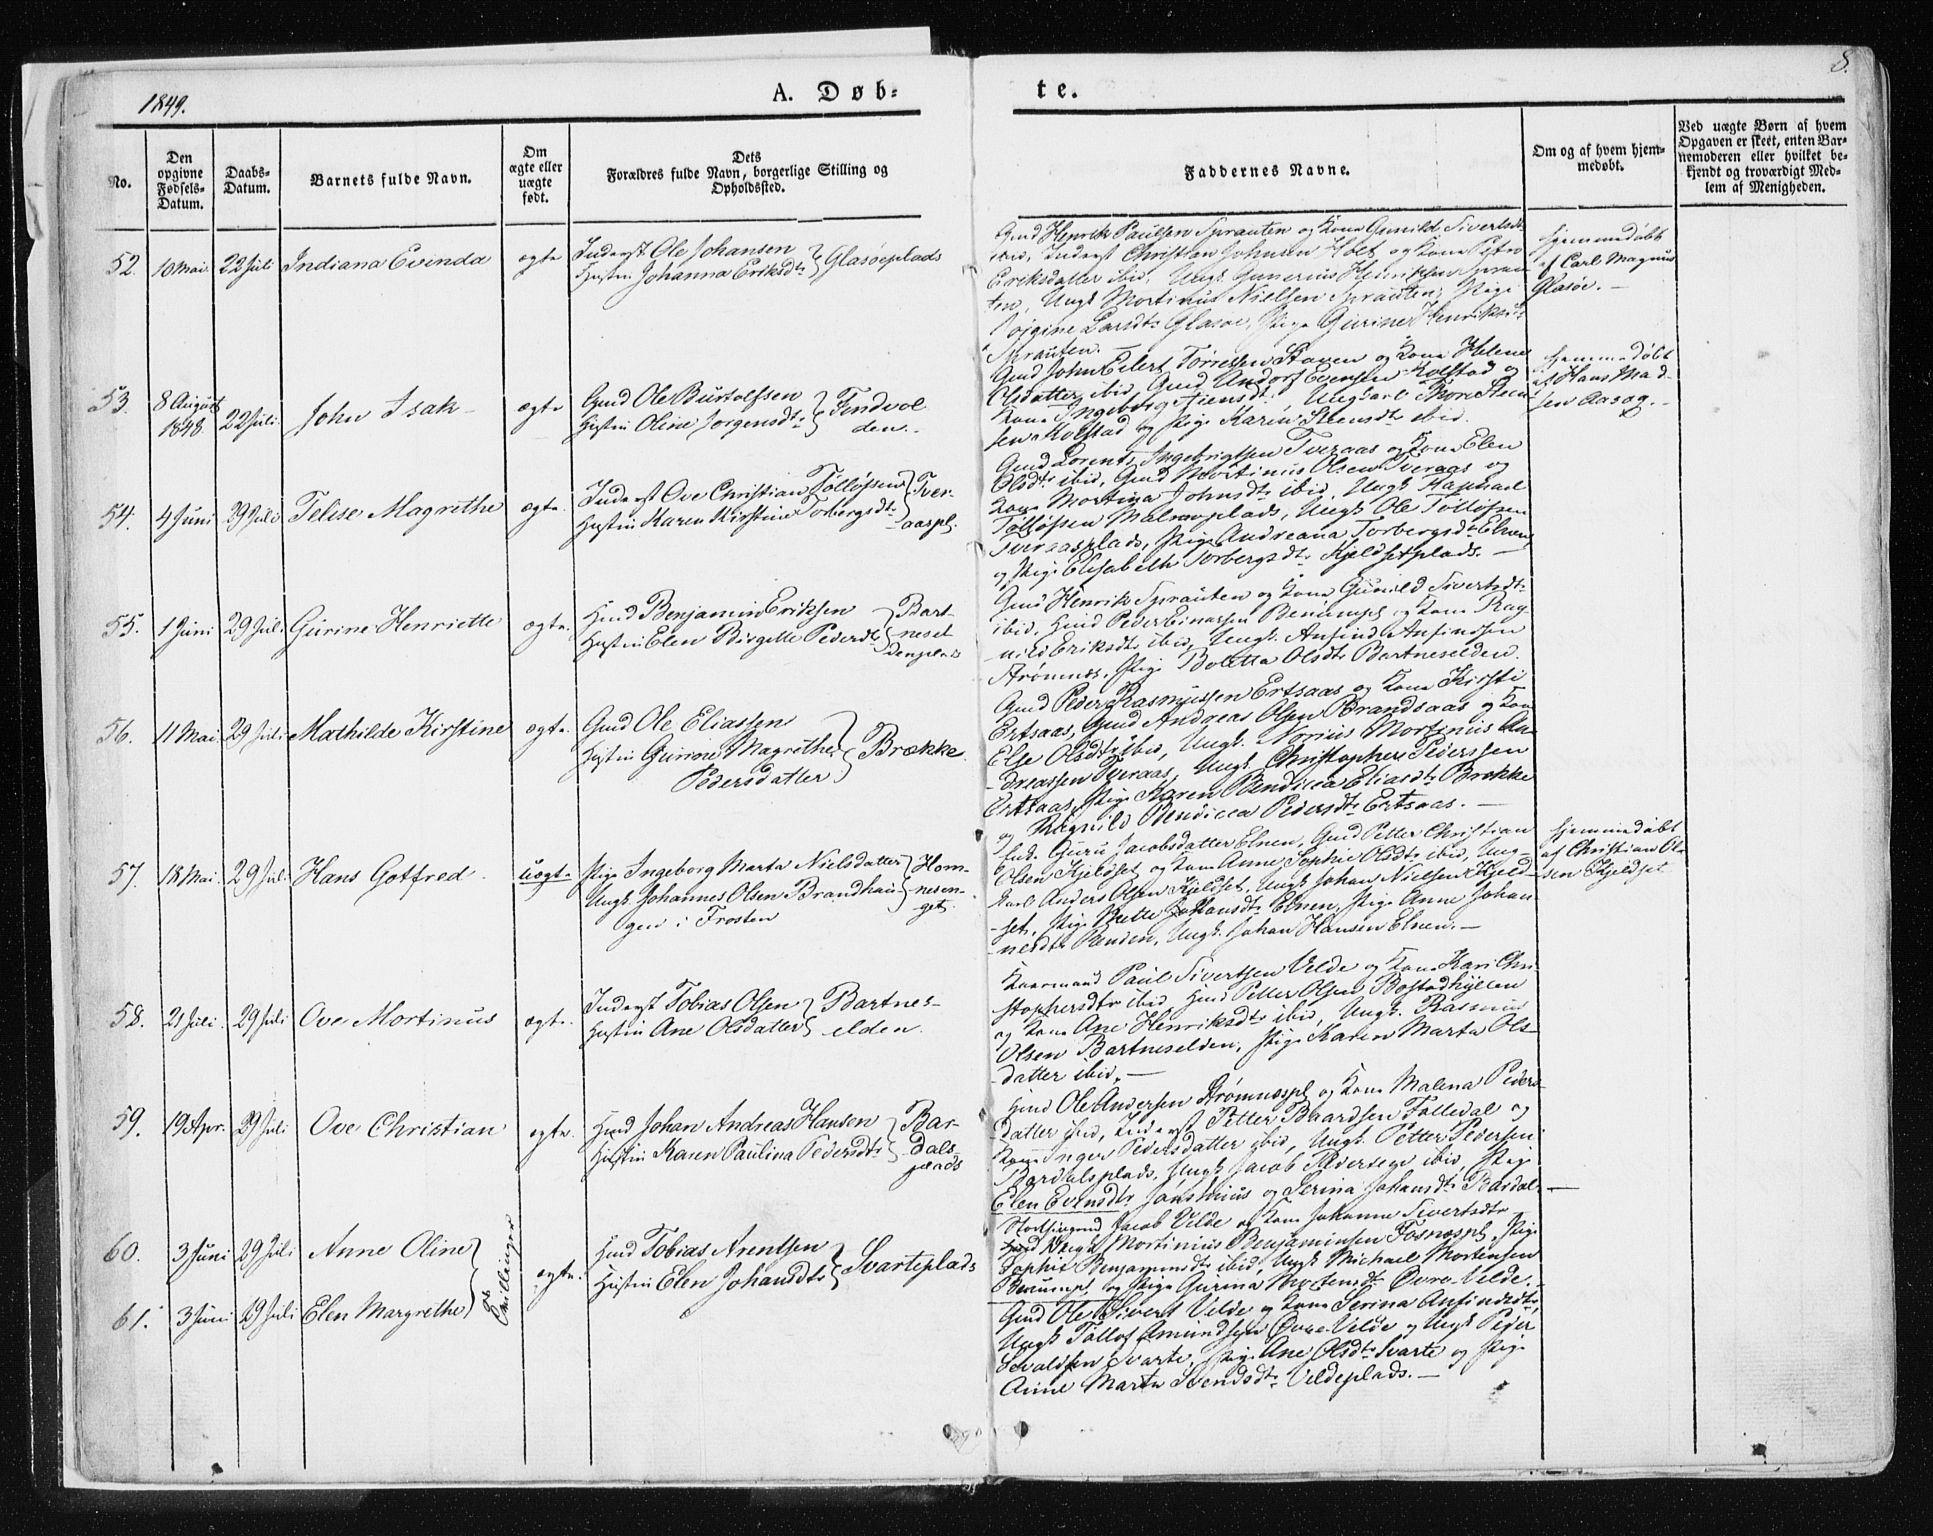 1849.
A. Døb-
te.
8.
No.
Den
opgivne
Fødsels-
Datum.
Daabs-
Datum.
Barnets fulde Navn.
Om
ægte eller
uægte
født.
Dets
Forældres fulde Navn, borgerlige Stilling og
Opholdssted.
Faddernes Navne.
Om og af hvem hjem-
medøbt.
Ved uægte Børn af hvem
Opgaven er skeet, enten Bar-
nemoderen eller hvilket be-
kjendt og troværdigt Med-
lem af Menigheden.
52. 10 Mai 22 Juli Indiana Evinda ægte
Inderst Ole Johansen
Hustru Johanna Eriksdtr
Glasøeplads
Gmd Henrik Paulsen Sprauten og Kone Gunild Sivertsdtr
ibid, Inderst Christian Johnsen Holt og Kone Petro
Eriksdatter ibid, Ungk Gunerius Henriksen Sprau-
ten, Ungk Mortinus Nielsen Sprauten, Pige
Larsdtr Glasøe, Pige Gurine Henriksdtr
Sprauten.
Hjemmedøbt
af Carl Magnus
Glasøe.
53. 8 August
1848. 22 Juli. John Isak ægte
Gmd Ole Burtolfsen
Hustru Oline Jørgensdtr
Tindvol
den.
Gmd John Eilert Torresen Staven og Kone Helene
Olsdatter ibid, Gmd Andor Evensen Kolstad og
Kone Ingeborg Jensdtr, Ungkarl Thore Steen
sen Kolstad og Pige Karen Steensdtr ibid.
Hjemmedøbt
af Hans Mad-
sen Aasag.
54. 4 Juni 29 Juli Telise Magrethe ægte.
Inderst Ove Christian Tølløfsen
Hustru Karen Kirstine Torbergsdtr
Tver-
aaspl.
Gmd Lorents Ingebrigtsen Tveraas og Kone Elen
Olsdtr ibid, Gmd Mortinus Olsen Tveraas og
Kone Mortina Johnsdtr ibid, Ungk Haphael
Tølløfsen Malmoplads, Ungk Ole Tølløfsen
Tveraasplads, Pige Andreana Torbergsdtr Elnen,
og Pige Elisabeth Torbergsdtr Kjeldsetplads.
55. 1 Juni 29 Juli Gurine Henriette ægte.
Hmd Benjamin Eriksen
Hustru Elen Birgitte Pedersdtr
Bart-
nesel
denplads
Gmd Henrik Sprauten og Kone Gunild Sivertsdtr
ibid, Hmd Peder Einarsen Benumpl og Kone Rag
nild Eriksdtr ibid, Ungk. Anfind Anfindsen
Strømnes, Pige Boletta Olsdtr Bartneselden.
56. 11 Mai 29 Juli Mathilde Kirstine ægte.
Gmd Ole Eliassen
Hustru Gurine Magrethe
Pedersdatter
Brække
Gmd Peder Rasmussen Ertsaas og Kone Kirsti
Ertsaas, Gmd Andreas Olsen Brandsaas og Kone
Else Olsdtr ibid, Ungk. Norius Mortinus An
dreassen Tveraas, Ungk. Christopher Pedersen
Ertsaas, Pige Karen Bendicea Eliasdtr Brække
og Ragnild Bendicea Pedersdtr Ertsaas.
57. 18 Mai. 29 Juli. Hans Gotfred uægte
Pige Ingeborg Marta Nielsdatter
Ungk Johannes Olsen Brandhau
gen i Frosten
Hom-
nesen-
get.
Guru Jacobsdatter Elnen, Gmd Petter Christian
Olsen Kjeldset og Kone Anne Sophie Olsdtr ibid, Ung-
karl Anders Olsen Kjeldset, Ungk Johan Nielsen Kjeld-
set, Pige Mette Johansdtr Elnen, Pige Anne Johan
nesdtr Benden, Ungk. Johan Hansen Elnen.
Hjemmedøbt
af Christian Ol-
sen Kjeldset
58. 21 Juli. 29 Juli Ove Mortinus ægte.
Inderst Tobias Olsen
Hustru Ane Olsdatter
Bartnes-
elden.
Kaarmand Paul Sivertsen Velde og Kone Kari Chri-
stophersdtr ibid, Hmd Petter Olsen Bostadhylen
og Kone Ane Henriksdtr ibid, Ungk. Rasmus
Olsen Bartneselden, Pige Karen Marta Ols-
datter ibid.
59. 19 Apr. 29 Juli Ove Christian ægte.
Hmd Johan Andreas Hansen
Hustru Karen Paulina Pedersdtr
Bar-
dals-
plads
Hmd Ole Andersen Strømnespl og Kone Malena Peders
datter ibid, Inderst Petter Baardsen Falledal og
Kone Inger Pedersdatter ibid, Ungk. Petter Pedersen
Bardalsplads, Ungk Jacob Pedersen ibid, Pige
Elen Evensdtr og Serina Johansdtr Bardal
60. 3 Juni 29 Juli Anne Oline
61. 3 Juni 29 Juli Elen Margrethe
Tvillinger
ægte.
Hmd Tobias Arentsen
Hustru Elen Johansdtr
Svarteplads
Jacob Velde og Kone Johanna Sivertsdtr
Mortinius Benjaminsen Fosnespl, Pige
Sophie Benjaminsdtr ibid, Ungk Michael Mortensen
Benumpl, og Pige Gurina Mortensdtr Øvre-Velde.
Gmd Ole Sivert Velde og Kone Serina Anfindsdtr,
Ungk Tøllof Amundsen Øvre Velde og Ungk Peder
Sevaldsen Svarte, Pige Ane Olsdtr Svarte og Pige
Anne Marta Svendsdtr Veldeplads.